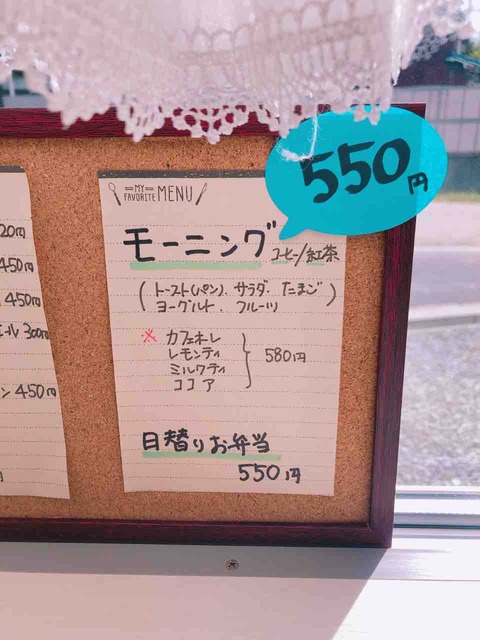 20円
450円
450円
ール 300円
ン 450円
円
MY FAVORITE MENU
550円
モーニング コーヒー/紅茶
(トースト(パン)、サラダ、たまご
ヨーグルト、フルーツ)
※ カフェオレ
レモンティ
ミルクティ
ココア
580円
日替りお弁当
550円